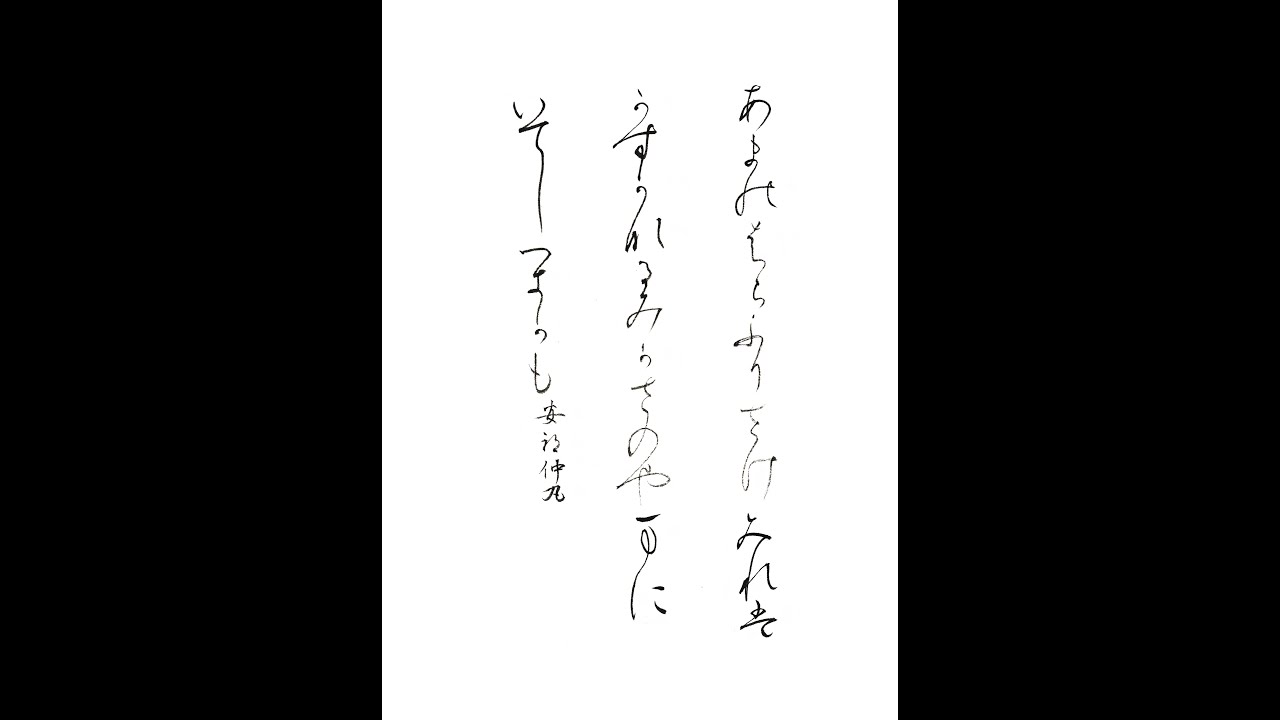 あまのはらふりさけみれは
かすかなるみかさのやまに
いてしつきかも
安部仲丸